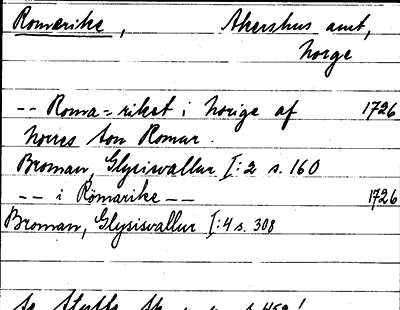 Romerike, Akershus amt,
Norge
-- Roma-riket i Norige af 1726
Norres son Romar.
Broman, Glysisvallur I:2 s. 160
-- i Römarike -- 1726
Broman, Glysisvallur I:4 s. 308